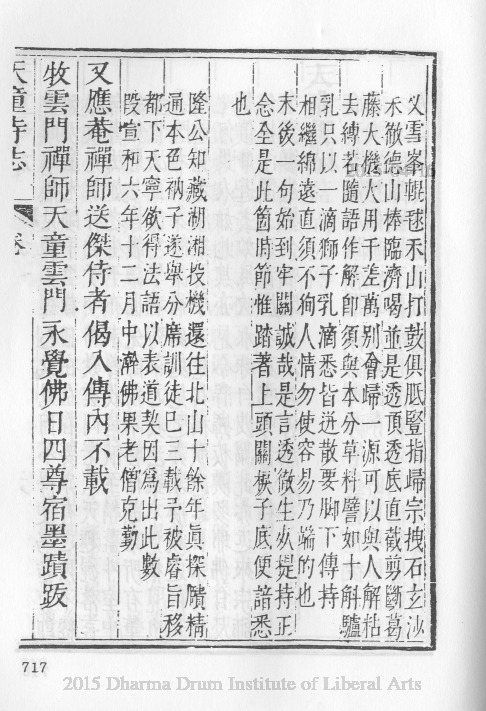 乂雪峯輥毬禾山打鼓俱胝豎指歸宗拽石玄沙
未徹德山棒臨濟喝並是透頂透底直截剪斷葛
藤大機大用千差萬別會歸一源可以與人解粘
去縛若隨語作解卽須與本分草料譬如十斛驢
乳只以一滴獅子乳滴悉皆迸散要脚下傳持
相繼綿遠直須不徇人情勿使容易乃端的也
末後一句始到牢關誠哉是言透徹生死提持正
念全是此箇時節惟踏著上頭關棙子底便諳悉
也
隆公知藏湖湘投機還往北山十餘年眞探賾精
通本色衲子遂舉分席訓徒已三載予被睿旨移
都下天寧欲得法語以表道契因爲出此數
段宣和六年十二月中澣佛果老僧克勤
又應菴禪師送傑侍者偈入傳內不載
牧雲門禪師天童雲門永覺佛日四尊宿墨蹟跋
天童寺志
卷
717
2015 Dharma Drum Institute of Liberal Arts